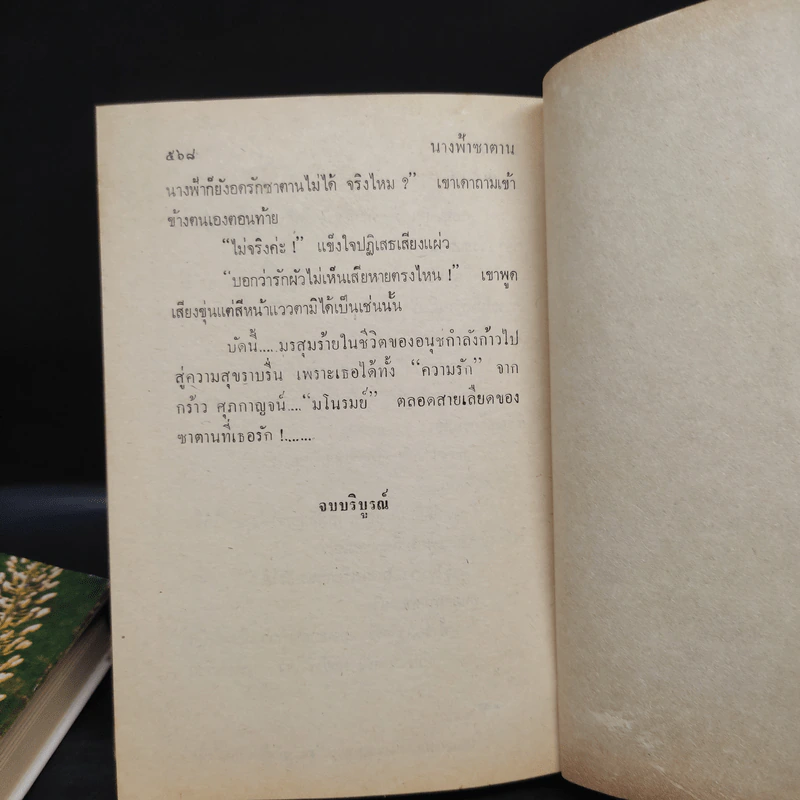 ๕๖๘ นางฟ้าซาตาน
นางฟ้าก็ยังอดรักซาตานไม่ได้ จริงไหม ?” เขาเดาถามเข้า
ข้างตนเองตอนท้าย
“ไม่จริงค่ะ !” แข็งใจปฏิเสธเสียงแผ่ว
“บอกว่ารักผัวไม่เห็นเสียหายตรงไหน !” เขาพูด
เสียงขุ่นแต่สีหน้าแววตามิได้เป็นเช่นนั้น
บัดนี้.....มรสุมร้ายในชีวิตของอนุชกำลังก้าวไป
สู่ความสุขราบรื่น เพราะเธอได้ทั้ง “ความรัก” จาก
กร้าว ศุภกาญจน์....“มโนรมย์” ตลอดสายเลือดของ
ซาตานที่เธอรัก !.......
จบบริบูรณ์